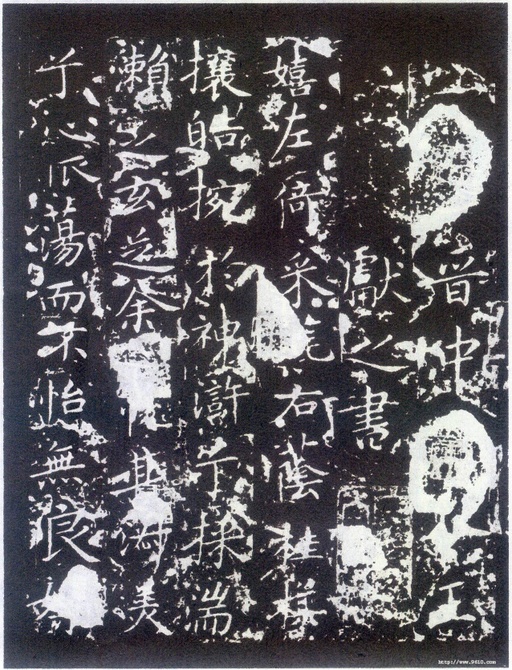 晉中王
獻之書
嬉左倚采旄右蔭桂旗
攘皓捥於神滸兮採湍
瀨之玄芝余其淑美
兮心蕩而不怡無良
http://www.9610.com